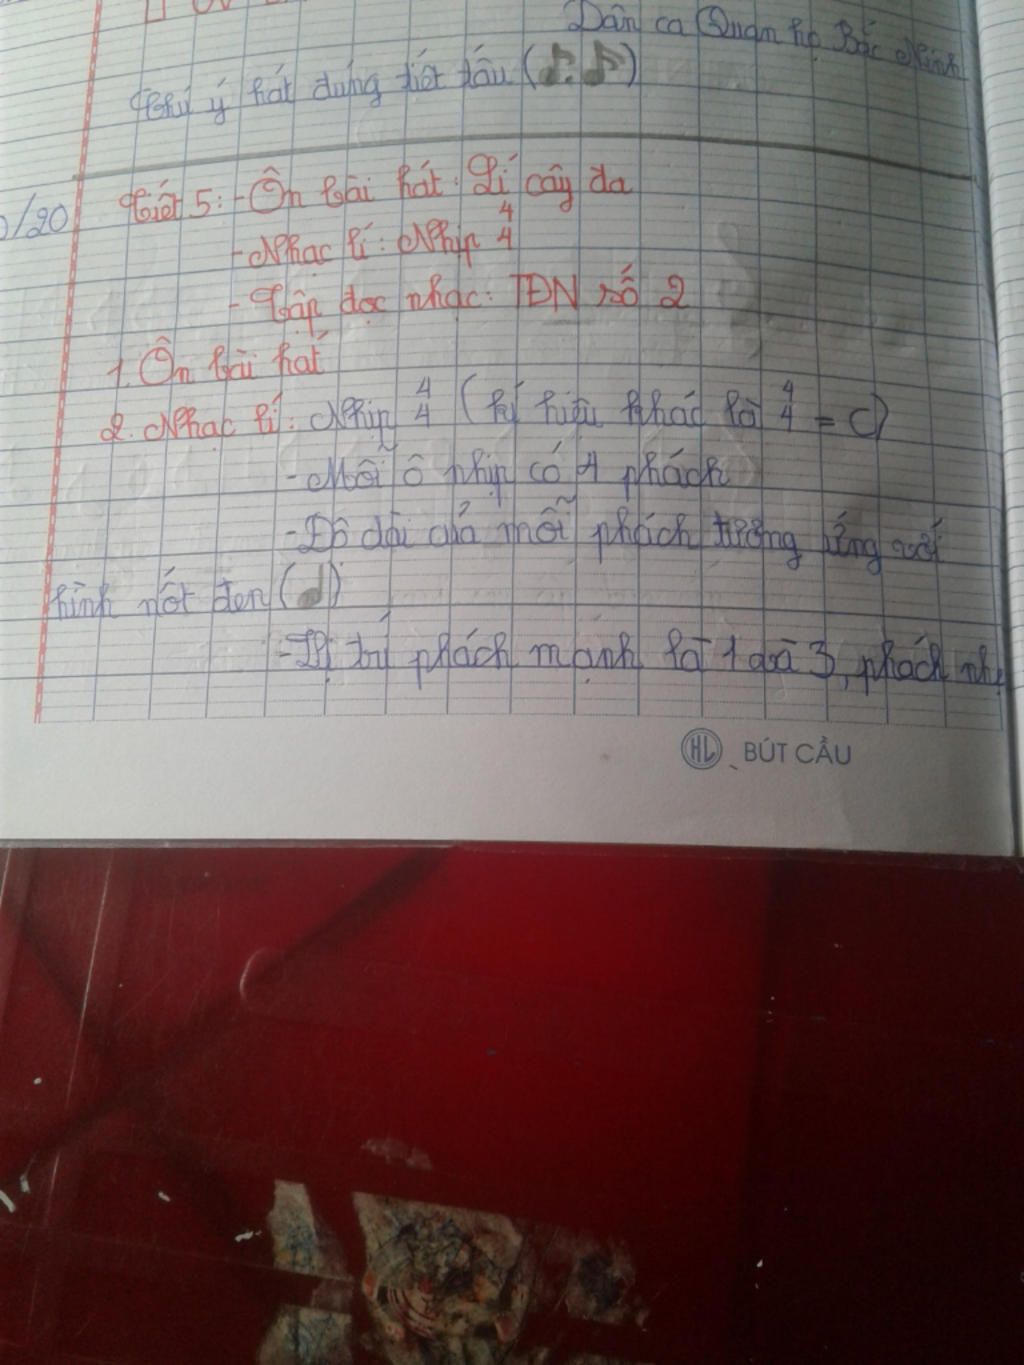 Dân ca Quan họ Bắc Ninh
Chú ý hát đúng tiết tấu (♪. ♪)
/20
Tiết 5: - Ôn bài hát: Lí cây đa
- Nhạc lí: Nhịp 4/4
- Tập đọc nhạc: TĐN số 2
1. Ôn bài hát
2. Nhạc lí: Nhịp 4/4 (kí hiệu khác là 4/4 = C)
- Mỗi ô nhịp có 4 phách
- Độ dài của mỗi phách tương ứng với
hình nốt đen (♩)
- Vị trí phách mạnh là 1 và 3, phách nhẹ
HL BÚT CẦU